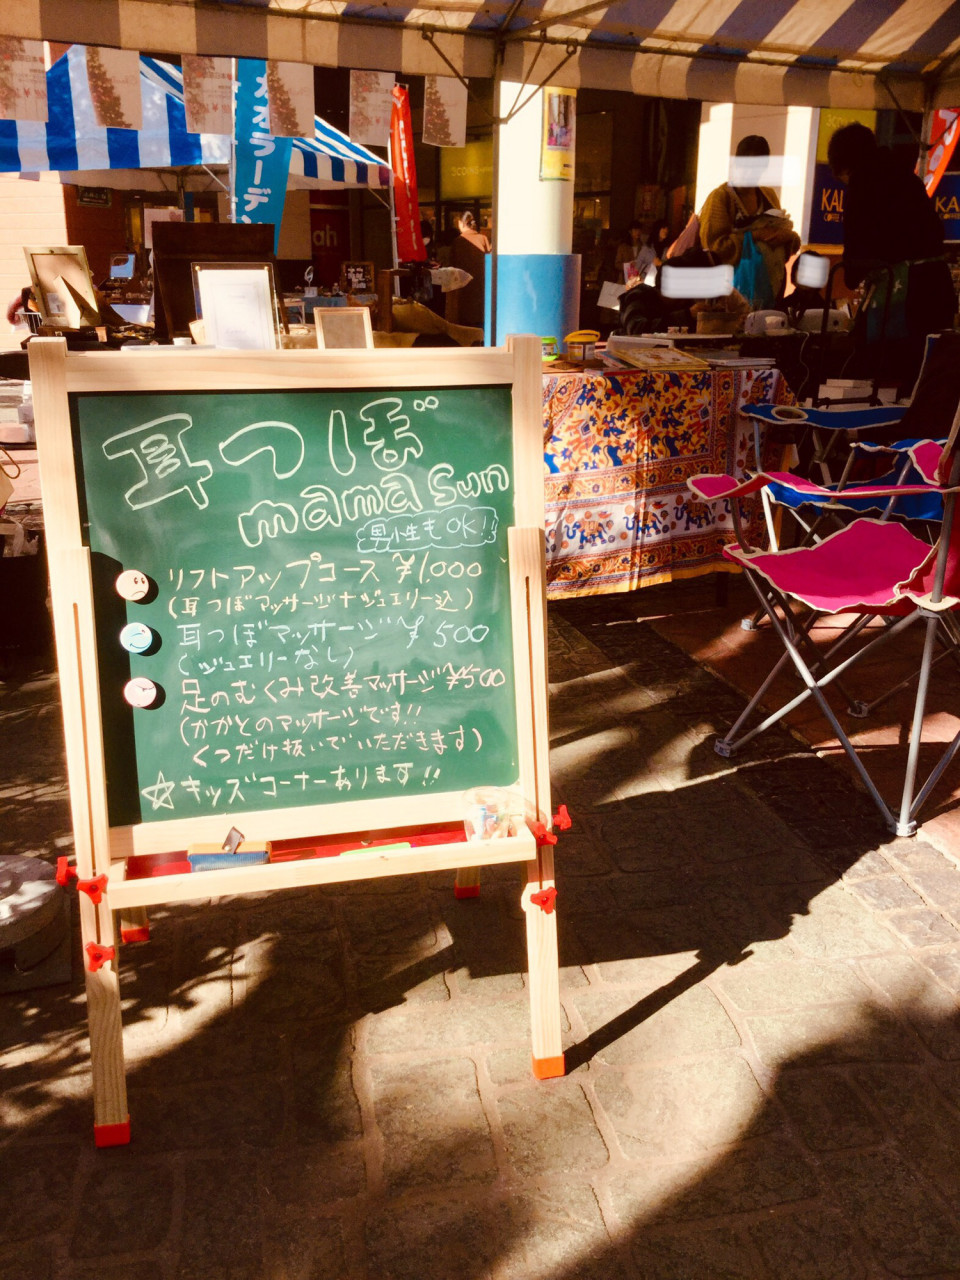 耳つぼ
mama sun
男性もOK!!
リフトアップコース ¥1,000
(耳つぼマッサージ+ジュエリー込)
耳つぼマッサージ ¥500
(ジュエリーなし)
足のむくみ改善マッサージ ¥500
(かかとのマッサージです!!
くつだけ抜いでいただきます)
☆キッズコーナーあります!!
カスラーデン
3COINS
KAL
KA